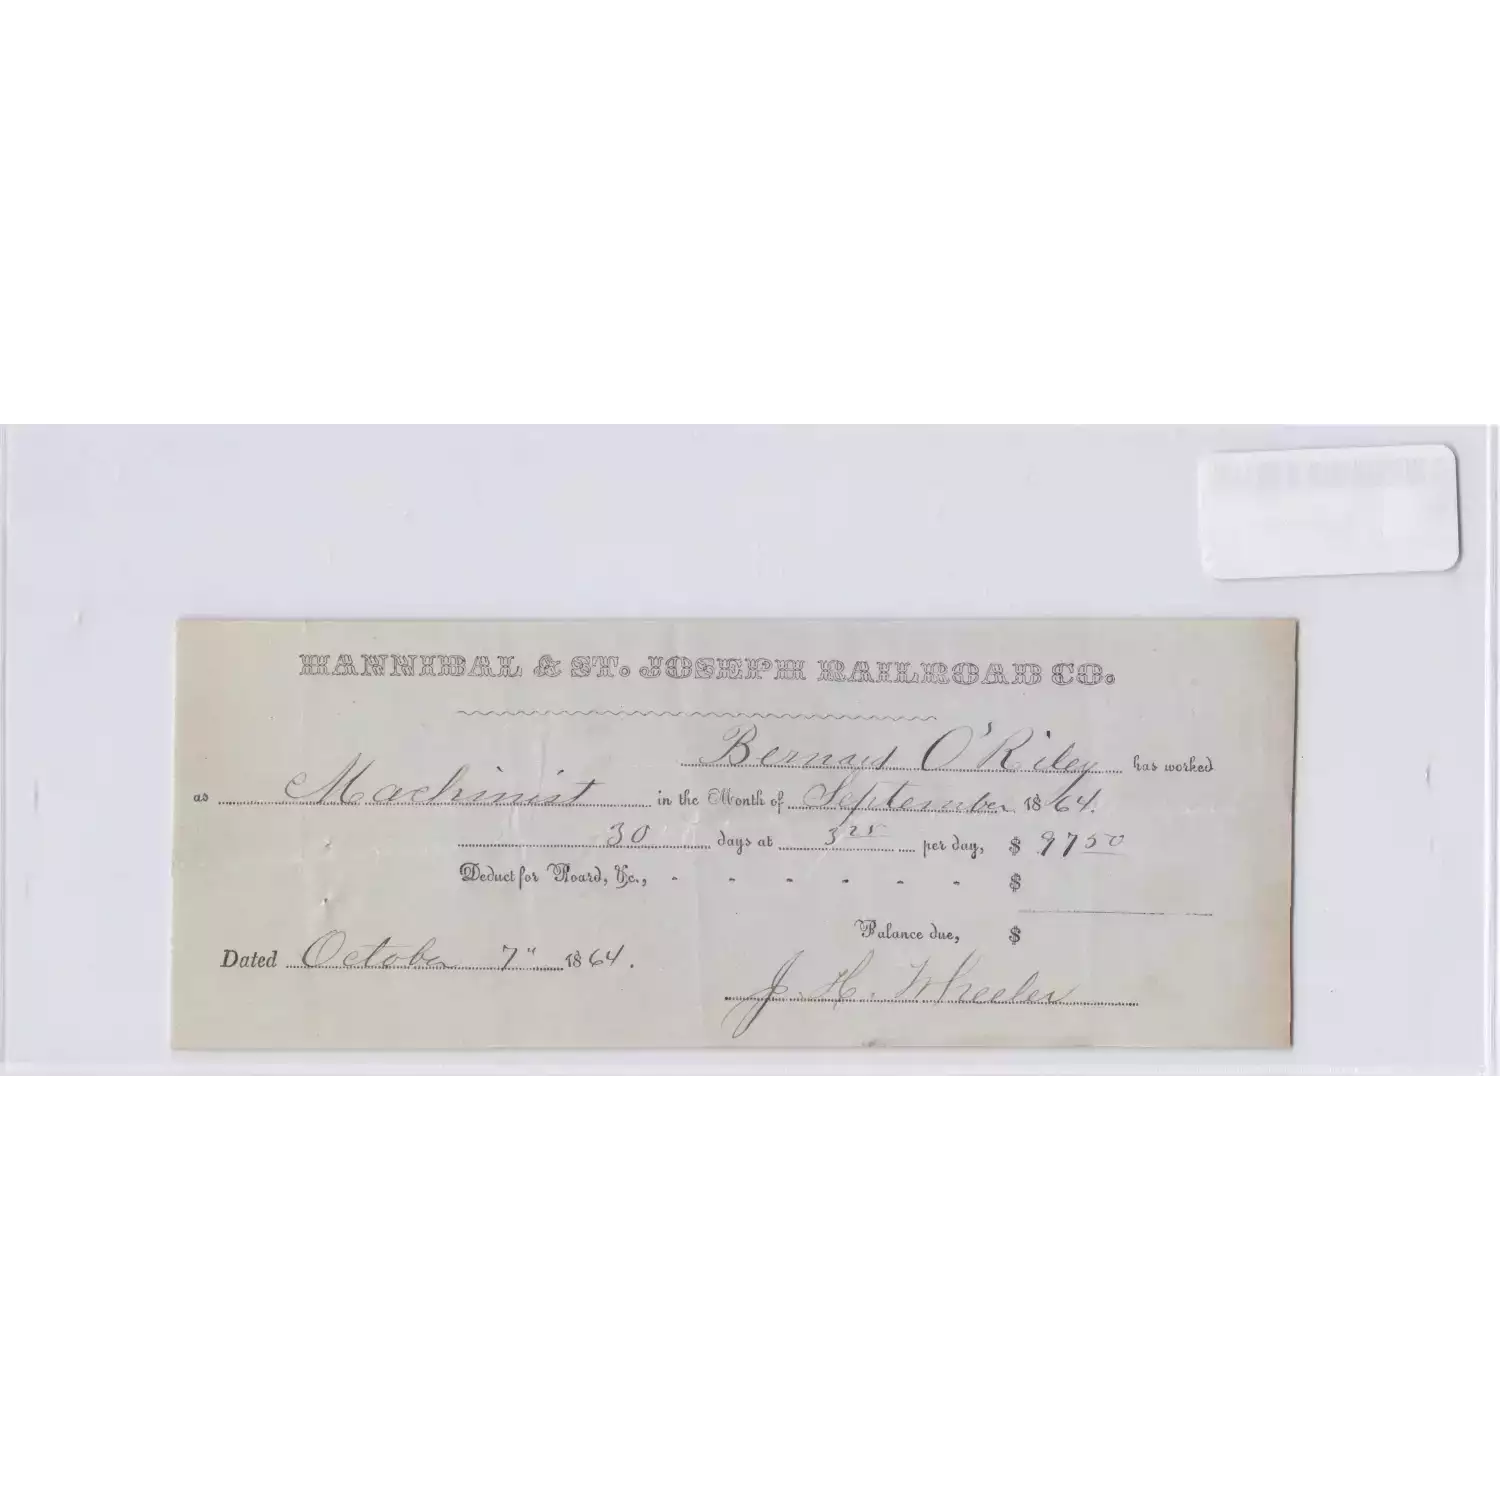 HANNIBAL & ST. JOSEPH RAILROAD CO.
Bernard O'Riley has worked
as Machinist in the Month of September 1864.
30 days at 3 25 per day, $ 97 50
Deduct for Board, &c., - - - - - - $
Balance due, $
Dated October 7" 1864.
J. H. Wheeler